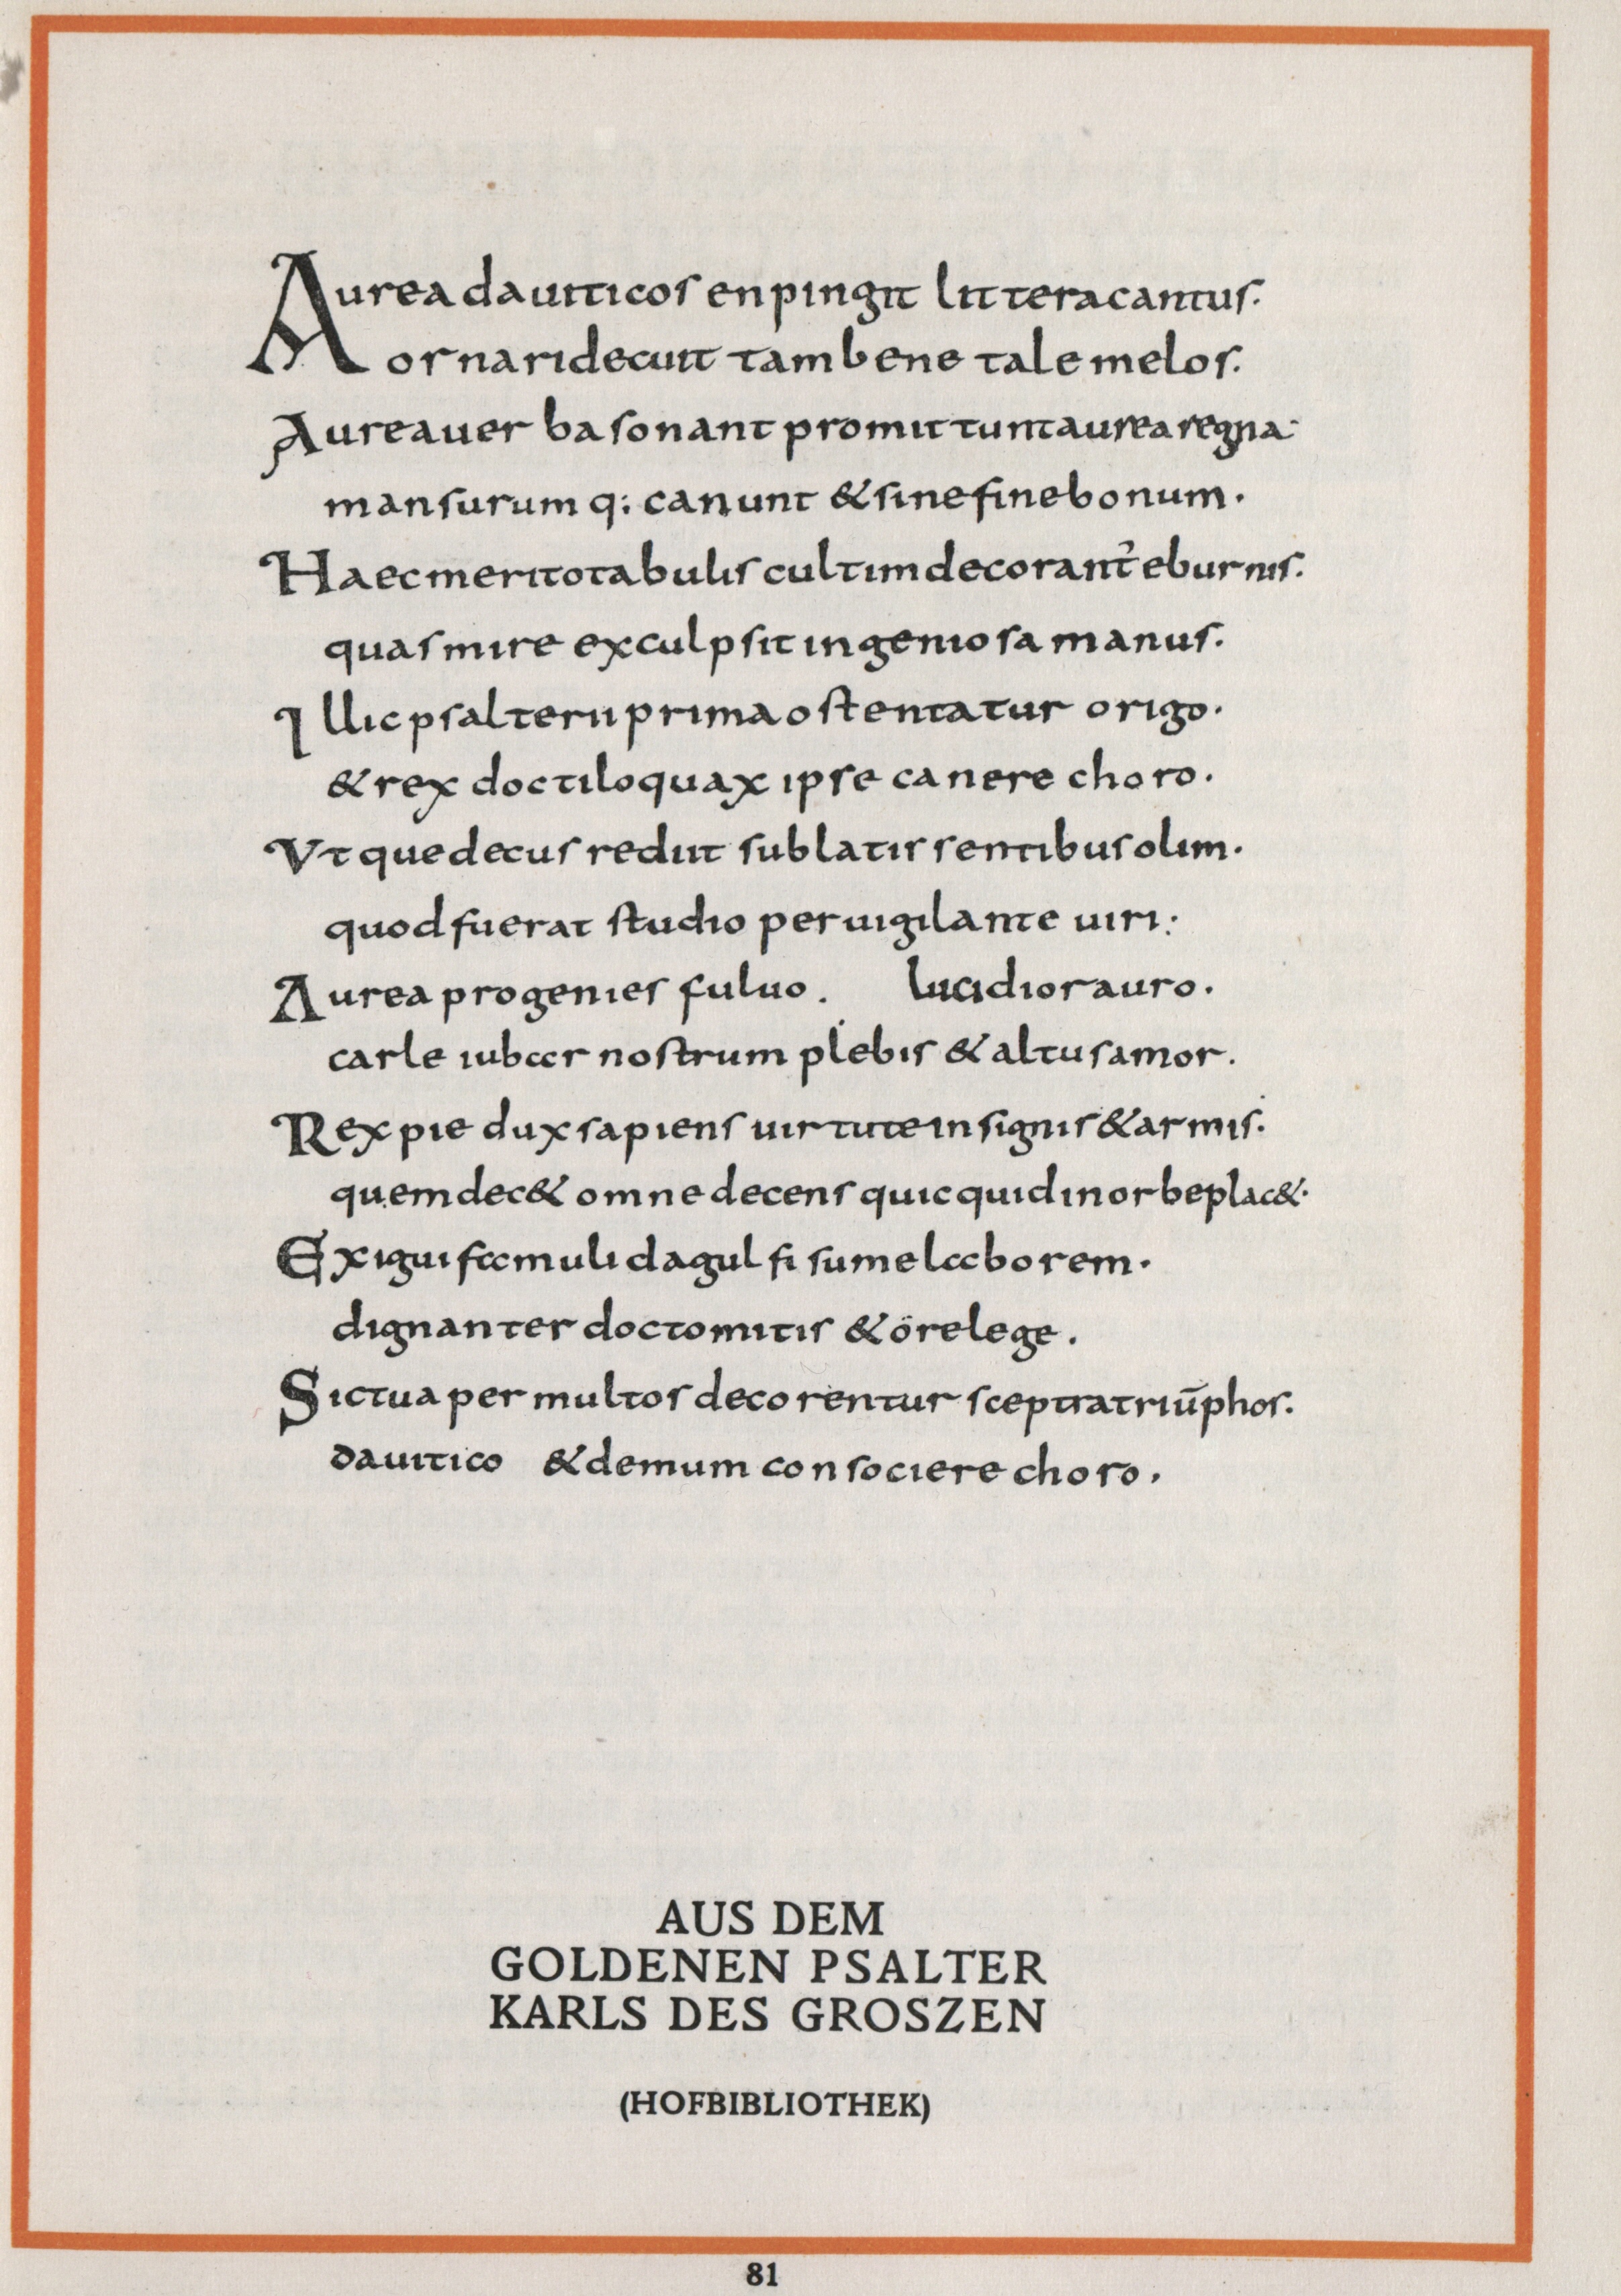 Aurea dauiticos en pingit littera cantus.
ornari decuit tam bene tale melos.
Aurea uerba sonant promittunt aurea regna
mansurumq; canunt & sine fine bonum.
Haec merito tabulis cultim decorant᾽ eburnis.
quas mire exculpsit ingeniosa manus.
Illic psalterii prima ostentatur origo.
& rex doctiloquax ipse canere choro.
Vtque decus rediit sublatis sentibus olim.
quod fuerat studio peruigilante uiri:
Aurea progenies fuluo. lucidior auro.
carle iubar nostrum plebis & altus amor.
Rex pie dux sapiens uirtute insignis & armis.
quem dec& omne decens quicquid in orbe plac&.
Exigui famuli dagulfi sume laborem.
dignanter docto mitis & ore lege.
Sic tua per multos decorentur sceptra triūphos.
dauitico & demum consociere choro.
AUS DEM
GOLDENEN PSALTER
KARLS DES GROSZEN
(HOFBIBLIOTHEK)
81